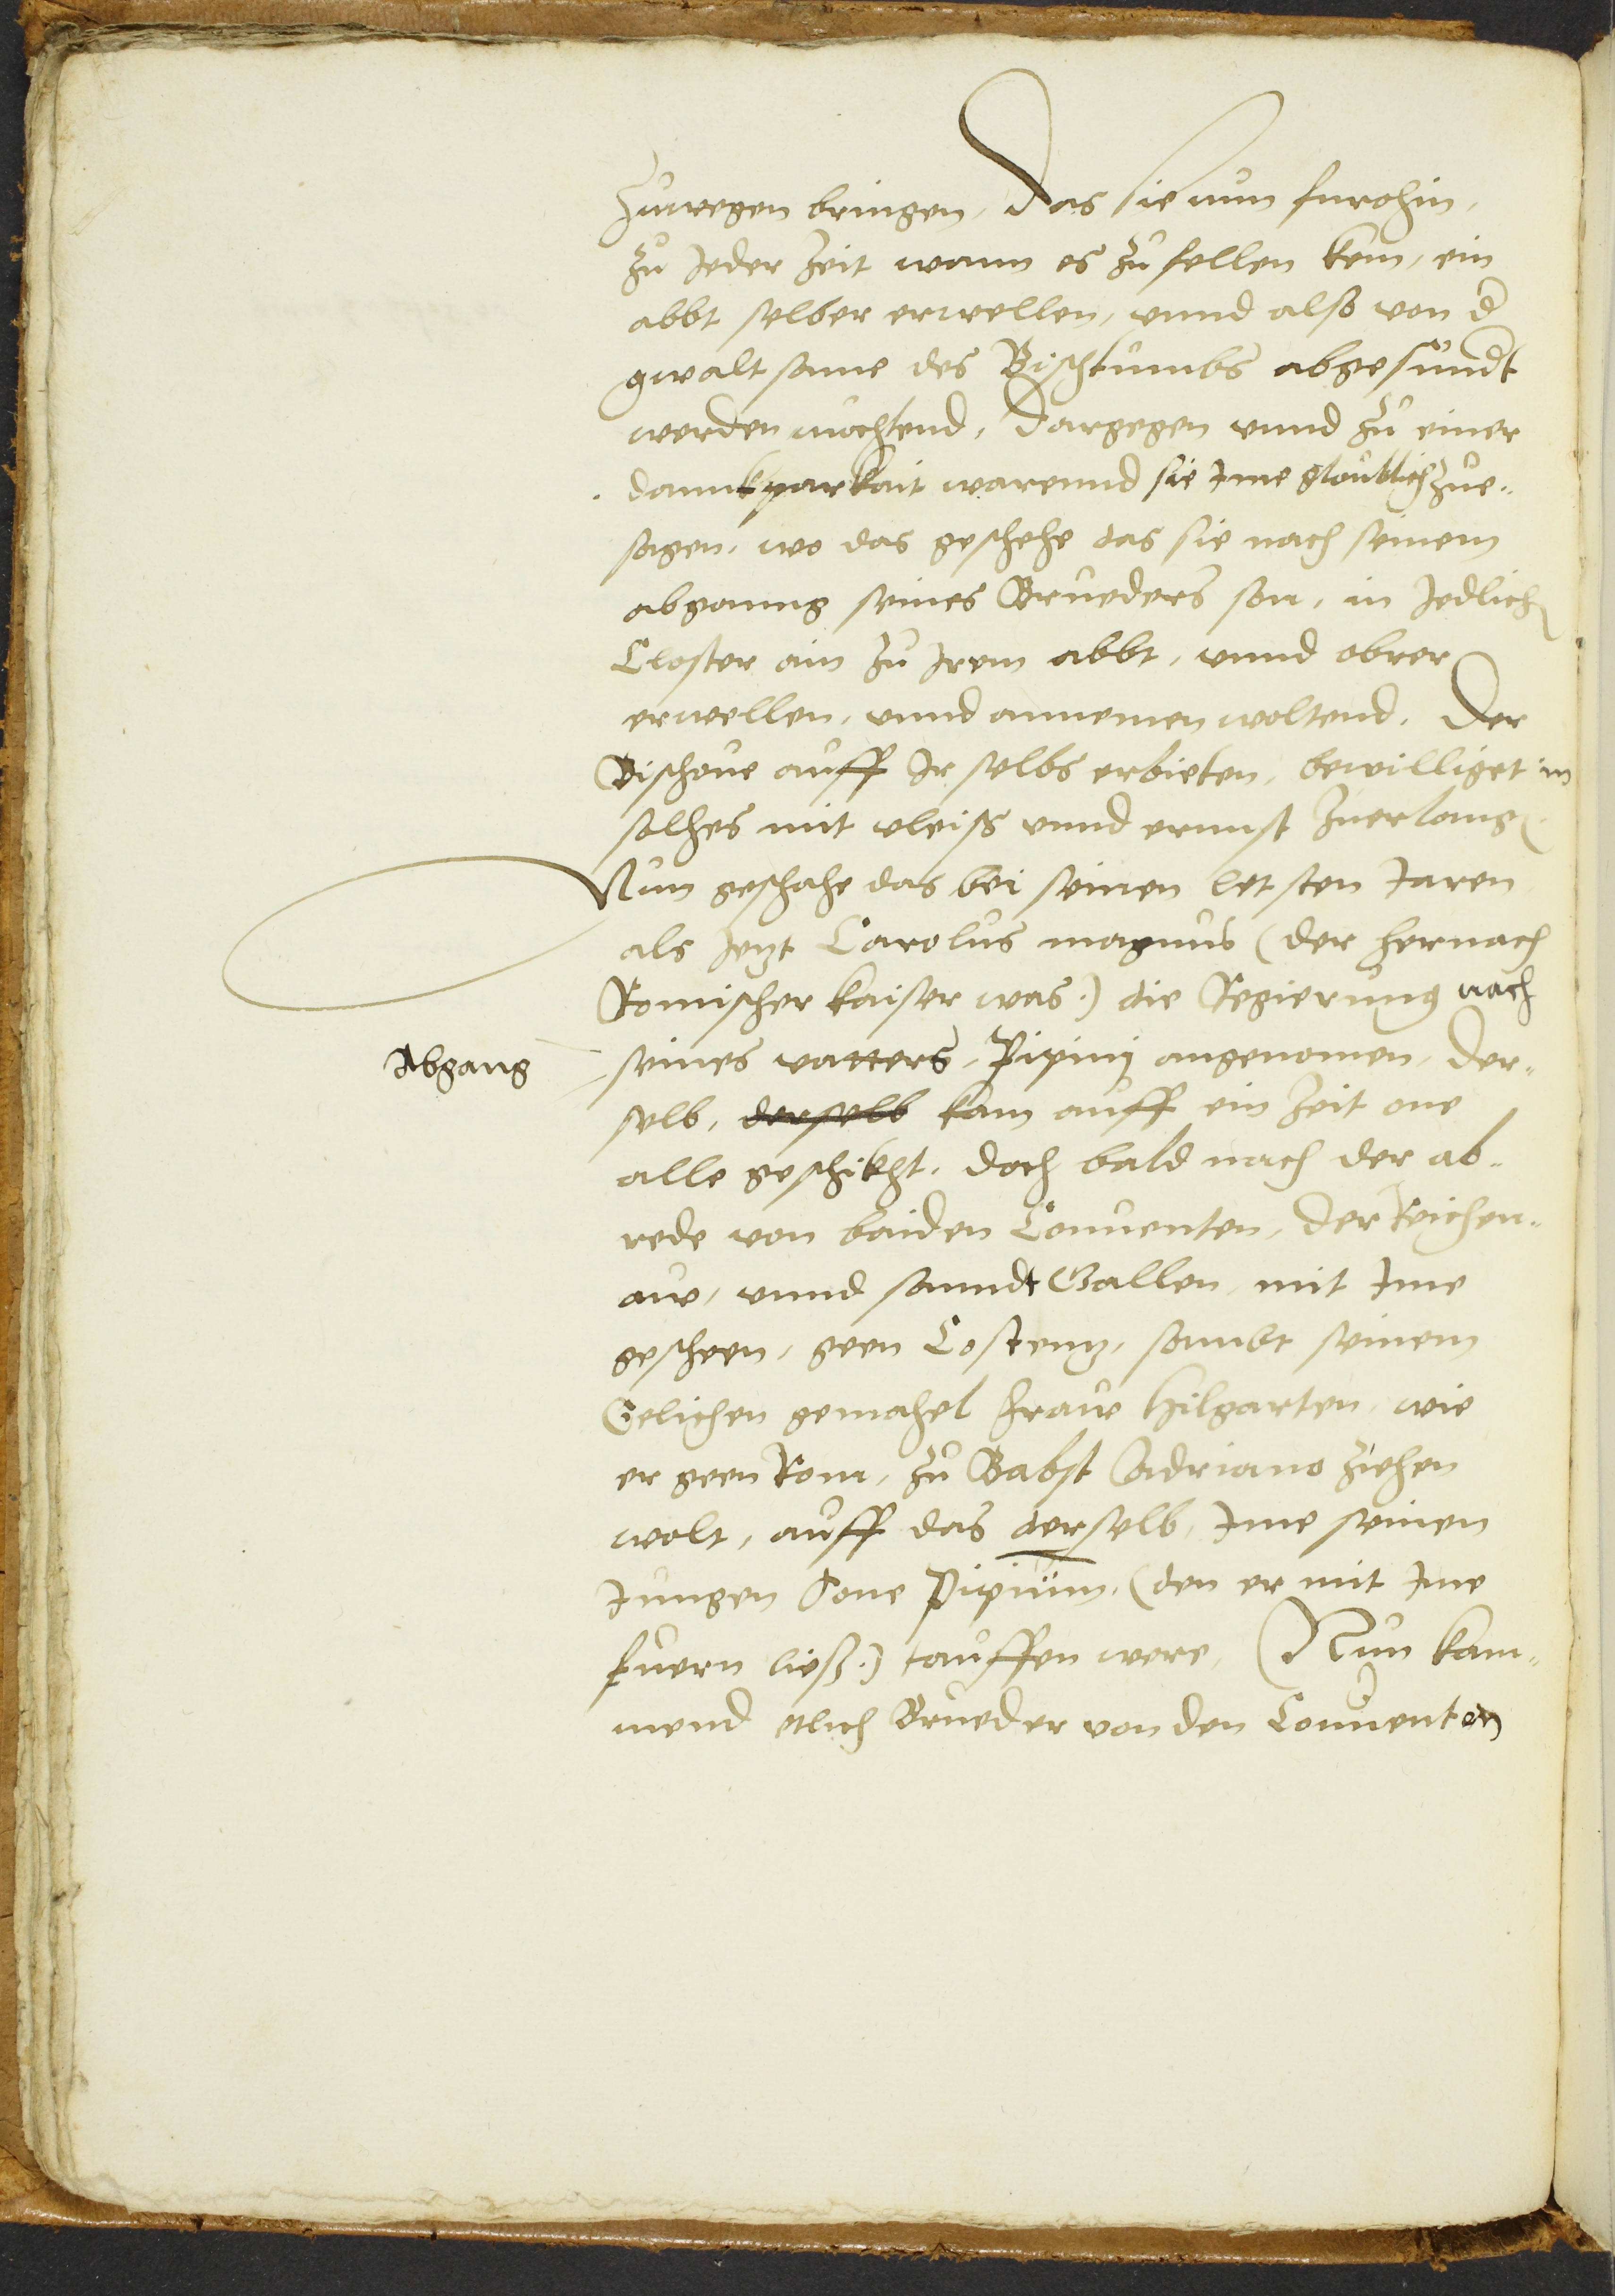 zuwegen bringen, Das sie nun furohin,
zu Jeder Zeit wann es zu fellen kem, ein
abbt selber erwellen, vnnd also von d
gwaltsame des Bischtumbs abgesündt
werden mochtend, Dargegen vnnd zu einer
dannkparkait warennd sie Ime gloublich zue„
sagen, wo das geschehe das sie nach seinem
abganng seines Brueders son, in Jedlich
Closter ain zu Irem abbt, vnnd obrer
erwellen, vnnd annemen woltend, Der
Bischoue auff Ir selbs erbieten, bewilliget in
solhes mit vleiß vnnd ernnst zuerlang
Nun geschahe das bei seinen letsten Jaren
als Jetzt Carolus magnus (der hernach
Romischer kaiser was.) die Regierung nach
Abgang
seines vatters, Pipinj angenomen, der„
selb, derselb kam auff ein Zeit one
alle geschikht, doch bald nach der ab„
rede von baiden Conuenten, der Reichen„
aw, vnnd sanndt Gallen, mit Ime
gescheen, geen Costenntz, sambt seinem
Eelichen gemahel fraw Hilgarten, wie
er geen Rom, zu Babst Adriano ziehen
wolt, auff das derselb, Ime seinen
Jungen Sone Pipinum, (den er mit Ime
fuern ließ.) tauffen were, Nun kam„
mend etlich Brueder von den Conuenten